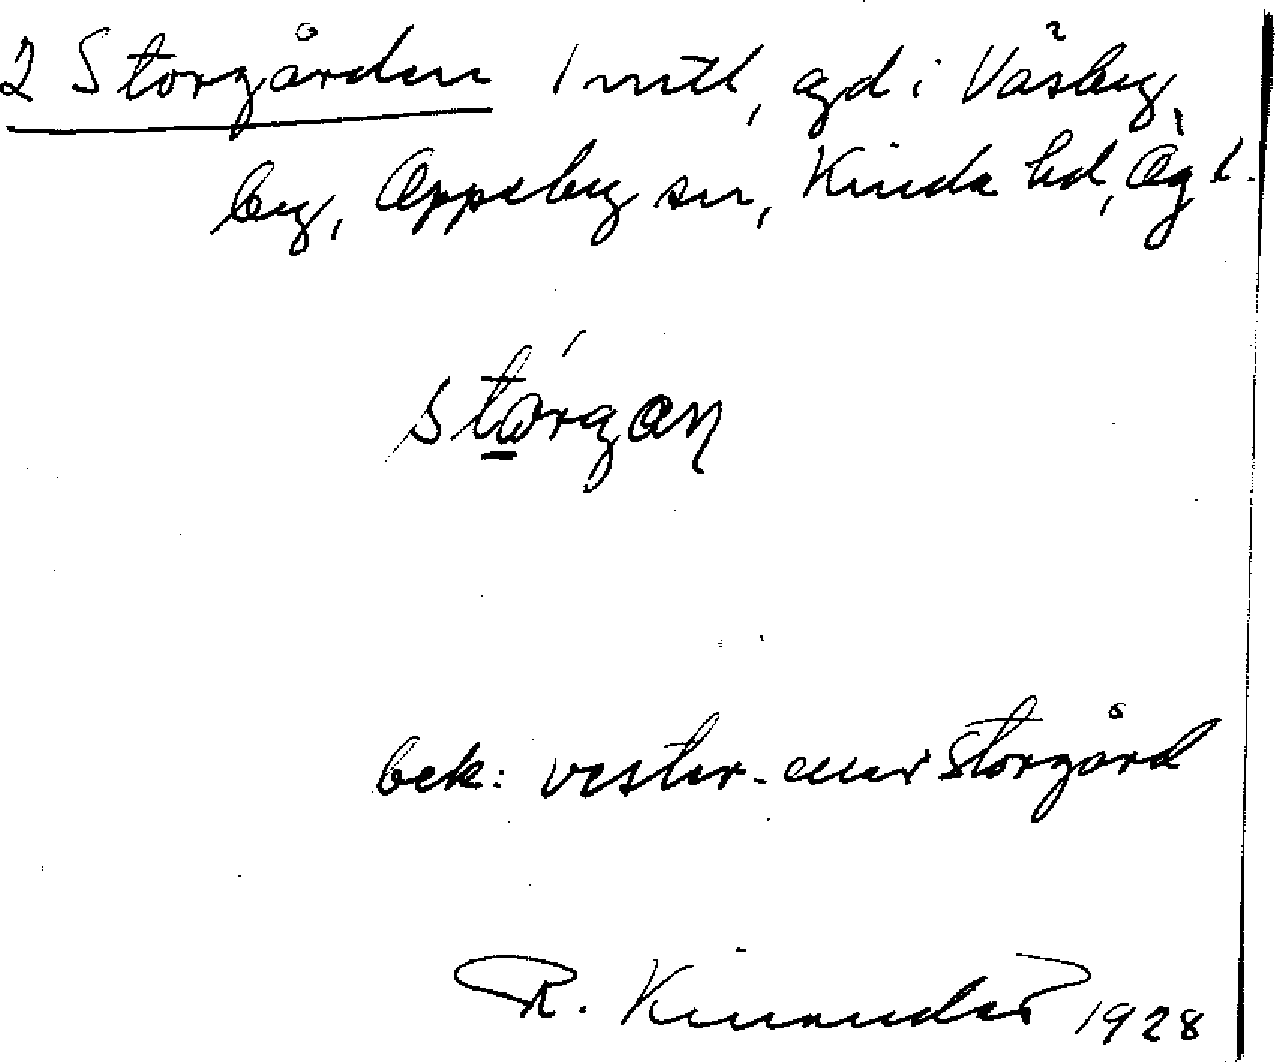 2 Storgården 1 mtl, gd i Väsby
by, Oppeby sn, Kinda hd, Ög l.
störgan
bek: vester- eller Storgård
R. Kinander 1928